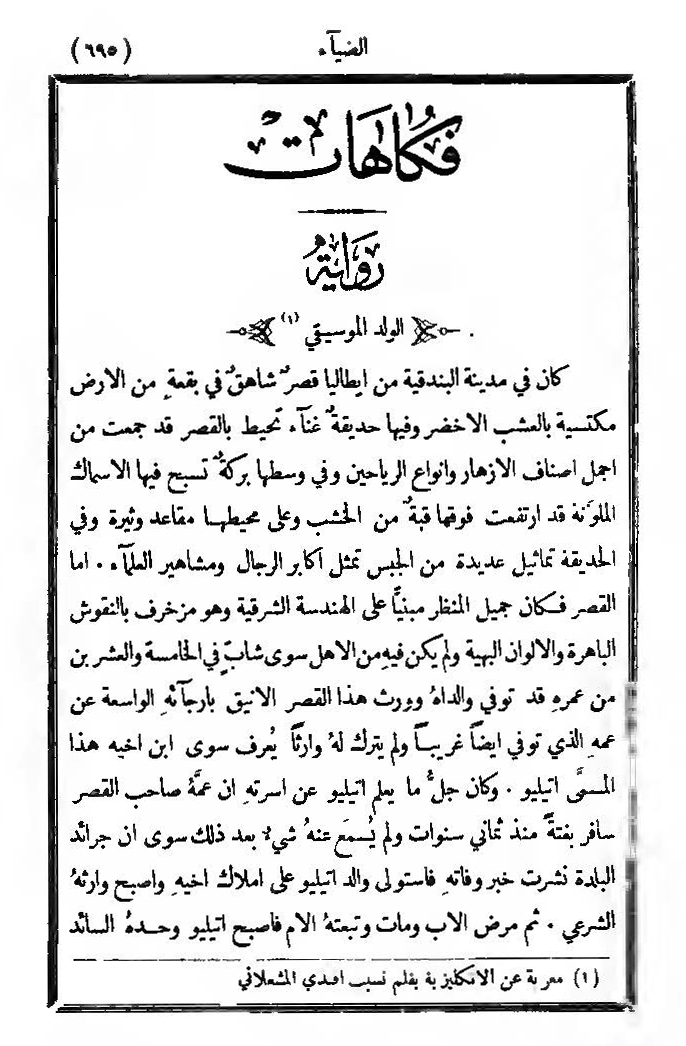 الضيآء (٦٩٥)
فكاهات
رواية
الولد الموسيقي (١)
كان في مدينة البندقية من ايطاليا قصرٌ شاهقٌ في بقعةٍ من الارض
مكتسية بالعشب الاخضر وفيها حديقةٌ غنآء تحيط بالقصر قد جمعت من
اجمل اصناف الازهار وانواع الرياحين وفي وسطها بركةٌ تسبح فيها الاسماك
الملوّنة قد ارتفعت فوقها قبةٌ من الخشب وعلى محيطها مقاعد وثيرة وفي
الحديقة تماثيل عديدة من الجبس تمثل اكابر الرجال ومشاهير العلمآء . اما
القصر فكان جميل المنظر مبنيًّا على الهندسة الشرقية وهو مزخرف بالنقوش
الباهرة والالوان البهية ولم يكن فيهِ من الاهل سوى شابٍّ في الخامسة والعشرين
من عمرهِ قد توفي والداهُ وورث هذا القصر الانيق بارجآئهِ الواسعة عن
عمهِ الذي توفي ايضاً غريباً ولم يترك لهُ وارثاً يُعرف سوى ابن اخيه هذا
المسمَّى اتيليو . وكان جلُّ ما يعلم اتيليو عن اسرتهِ ان عمَّهُ صاحب القصر
سافر بغتةً منذ ثماني سنوات ولم يُسمَع عنهُ شيءٌ بعد ذلك سوى ان جرائد
البلدة نشرت خبر وفاتهِ فاستولى والد اتيليو على املاك اخيهِ واصبح وارثهُ
الشرعي . ثم مرض الاب ومات وتبعتهُ الام فاصبح اتيليو وحدهُ السائد
(١) معربة عن الانكليزية بقلم نسيب افندي المشعلاني